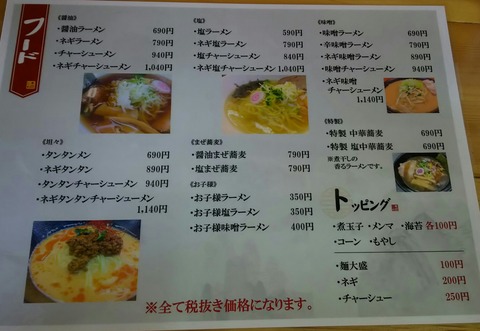 フード
《醤油》
・醤油ラーメン 690円
・ネギラーメン 790円
・チャーシューメン 940円
・ネギチャーシューメン 1,040円
《塩》
・塩ラーメン 590円
・ネギ塩ラーメン 790円
・塩チャーシューメン 840円
・ネギ塩チャーシューメン 1,040円
《味噌》
・味噌ラーメン 690円
・辛味噌ラーメン 790円
・ネギ味噌ラーメン 890円
・味噌チャーシューメン 940円
・ネギ味噌
チャーシューメン
1,140円
《特製》
・特製 中華蕎麦 690円
・特製 塩中華蕎麦 690円
※煮干しの
香るラーメンです。
《坦々》
・タンタンメン 690円
・ネギタンタン 890円
・タンタンチャーシューメン 940円
・ネギタンタンチャーシューメン
1,140円
《まぜ蕎麦》
・醤油まぜ蕎麦 790円
・塩まぜ蕎麦 790円
《お子様》
・お子様ラーメン 350円
・お子様塩ラーメン 350円
・お子様味噌ラーメン 400円
トッピング
・煮玉子 ・メンマ ・海苔 各100円
・コーン ・もやし
・麺大盛 100円
・ネギ 200円
・チャーシュー 250円
※全て税抜き価格になります。